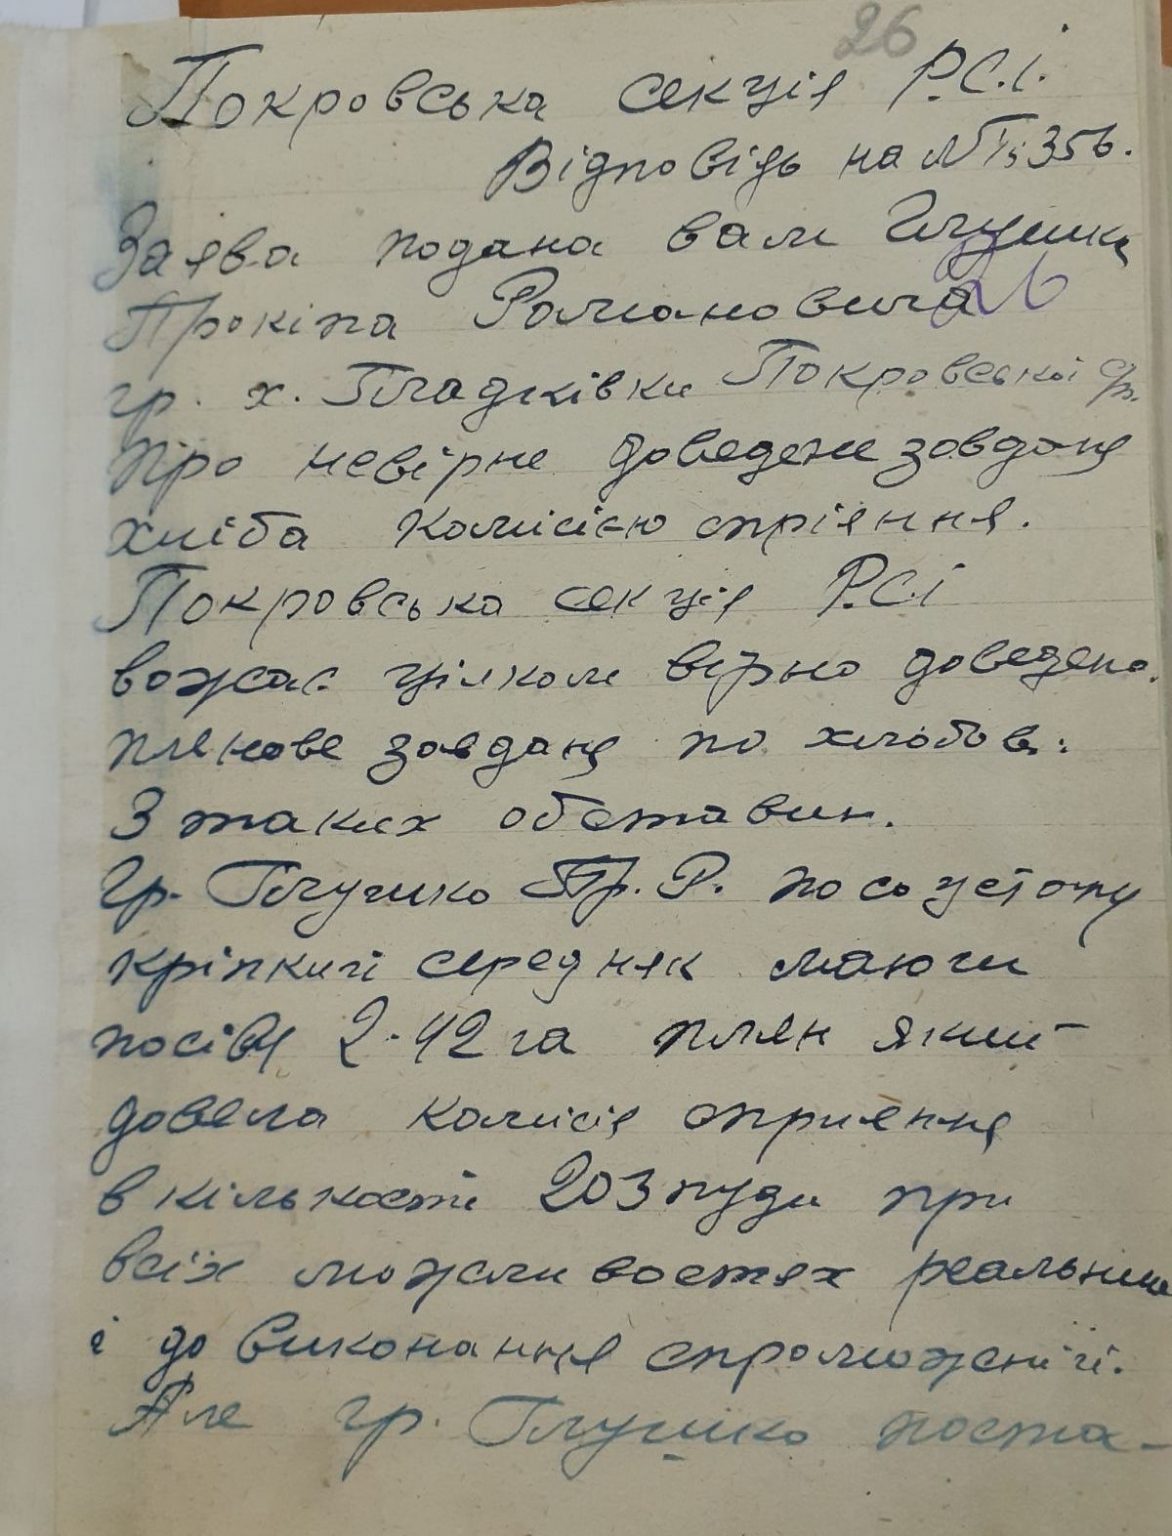 26
Покровська секція Р.С.І.
Відповідь на № 356.
Заява подана вами Глушка
26
Прокіпа Романовича
гр. х. Гладківки Покровської с/р.
про невірне доведене завдання
хліба комісією спріяння.
Покровська секція Р.С.І
вожає цілком вірно доведено.
плянове завданя по хлібозаг:
З таких обставин.
Гр. Глушко Пр. Р. по соц стану
кріпкий середняк маючи
посіву 2.42 га плян який
довела комісія сприяння
в кількості 203 пуди при
всіх можливостях реальний
і до виконання спроможній.
Але гр. Глушко поста-